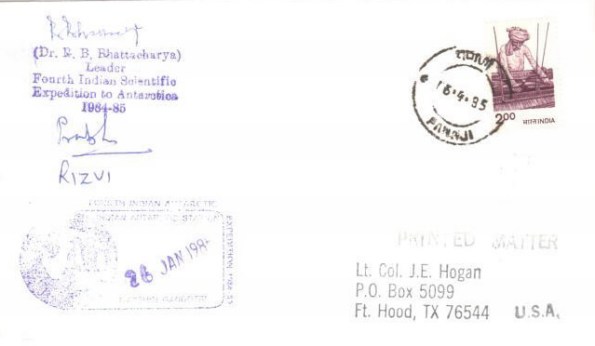 (Dr. B. B. Bhattacharya)
Leader
Fourth Indian Scientific
Expedition to Antarctica
1984-85
RIZVI
FOURTH INDIAN ANTARCTIC
EXPEDITION 1984-85
INDIAN ANTARCTIC STATION
26 JAN 198
16.4.85
PANAJI
2.00
भारत INDIA
PRINTED MATTER
Lt. Col. J.E. Hogan
P.O. Box 5099
Ft. Hood, TX 76544 U.S.A.